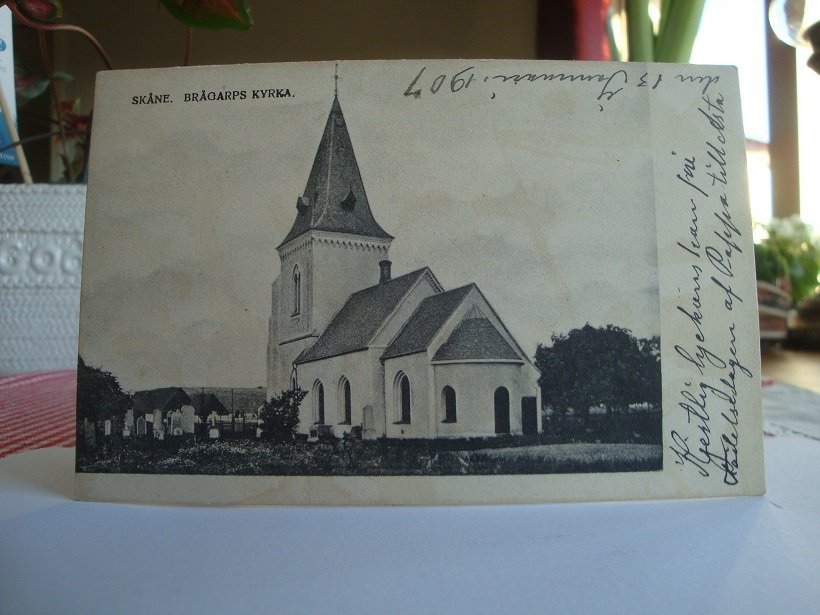 SKÅNE. BRÅGARPS KYRKA.
den 13 Januari. 1907
Hjertlig lyckönskan på
födelsedagen af Pappa till